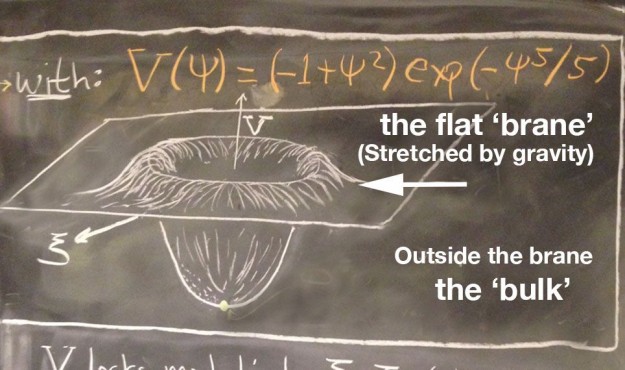 →with: V(ψ) = (-1+ψ²) exp(-ψ⁵/5)
V
the flat ‘brane’
(Stretched by gravity)
ξ
Outside the brane
the ‘bulk’
V locks